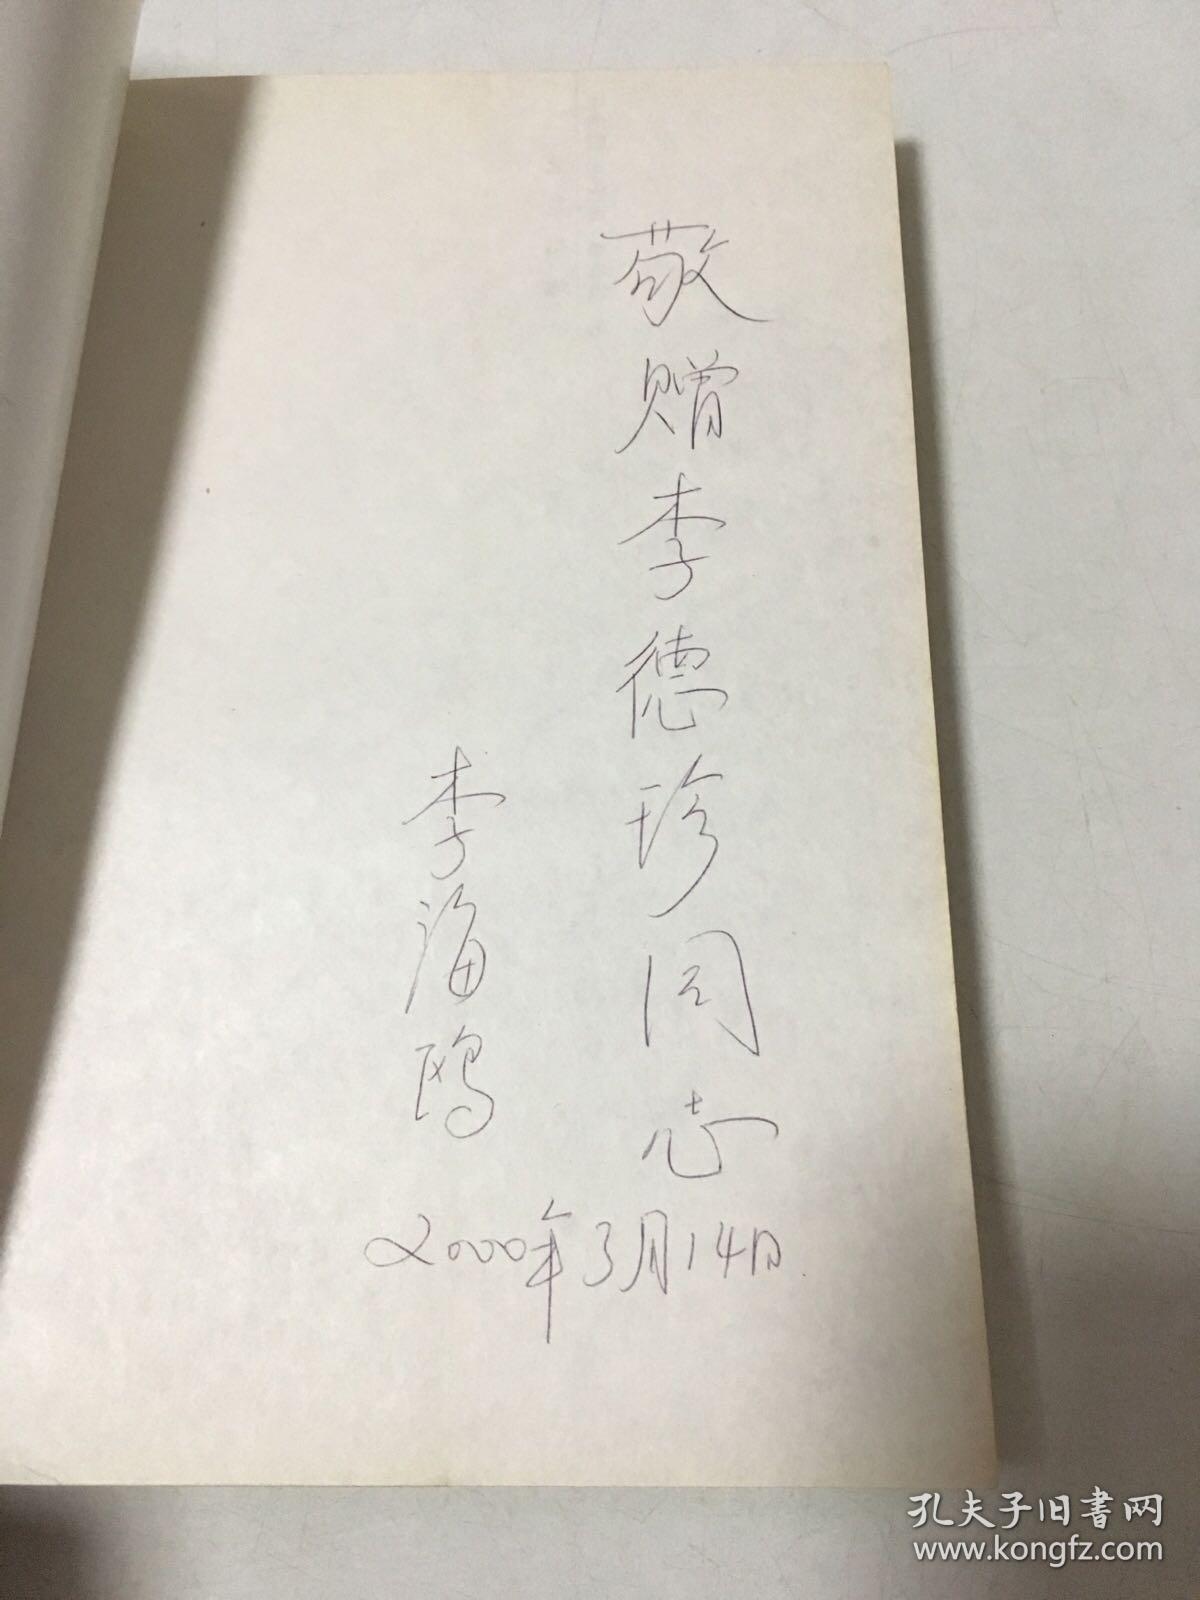 敬赠李德珍同志
李海鸥
2000年3月14日
孔夫子旧书网
www.kongfz.com